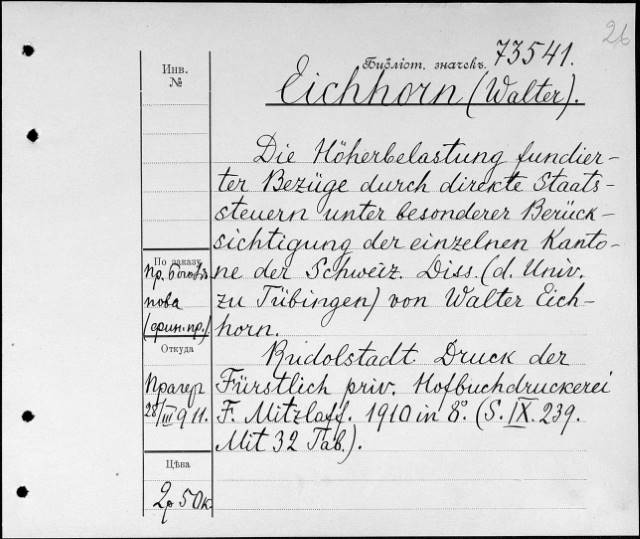 26
Библіот. значекъ. 73541.
Инв.
№
Eichhorn (Walter).
Die Höherbelastung fundier-
ter Bezüge durch direkte Staats-
steuern unter besonderer Berück-
sichtigung der einzelnen Kanto-
ne der Schweiz. Diss. (d. Univ.
zu Tübingen) von Walter Eich-
horn.
Rudolstadt. Druck der
Fürstlich priv. Hofbuchdruckerei
F. Mitzlaff. 1910 in 8°. (S. IX. 239.
Mit 32 Tab.).
По заказу
пр.
пова
(фин. пр.)
Откуда
Прагеръ
28/III 911.
Цѣна
2р 50к